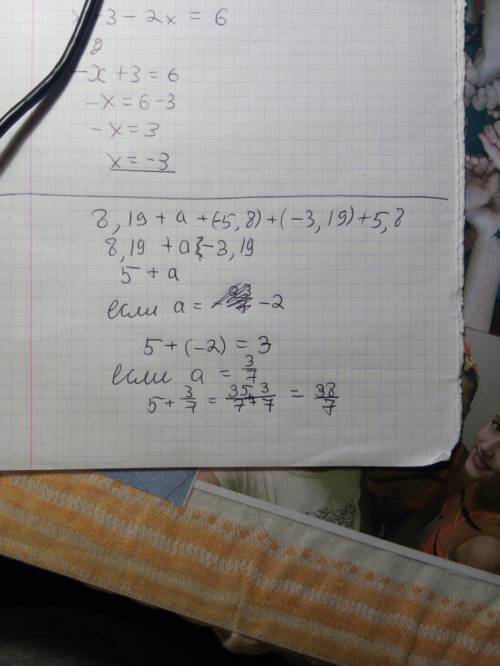 x+3-2x = 6
-x+3=6
-x=6-3
-x=3
x=-3
8,19 + a + (-5,8) + (-3,19) + 5,8
8,19 + a - 3,19
5 + a
если a = -2
5 + (-2) = 3
если a = 3/7
5 + 3/7 = 35+3/7 = 38/7